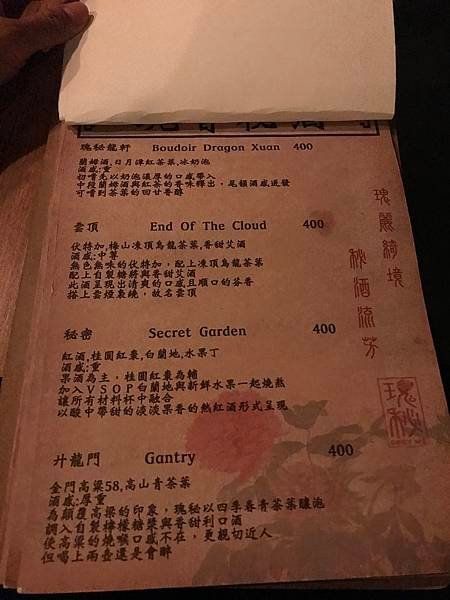 瑰秘龍軒 Boudoir Dragon Xuan 400
蘭姆酒,日月潭紅茶葉,冰奶泡
酒感:重
初嚐先以奶泡濃厚的口感帶入
中段蘭姆酒與紅茶的香味釋出,尾韻酒感迸發
可嚐到茶葉的回甘香醇
雲頂 End Of The Cloud 400
伏特加,梅山凍頂烏龍茶葉,香甜艾酒
酒感:中等
無色無味的伏特加,配上凍頂烏龍茶葉
配上自製糖將與香甜艾酒
此酒呈現出清爽的口感且順口的芬香
搭上雲煙裊繞,故名雲頂
秘密 Secret Garden 400
紅酒,桂圓紅棗,白蘭地,水果丁
酒感:重
果酒為主,桂圓紅棗為輔
加入VSOP白蘭地與新鮮水果一起燒熬
讓所有材料杯中融合
以酸中帶甜的淡淡果香的熱紅酒形式呈現
升龍門 Gantry 400
金門高粱58,高山青茶葉
酒感:厚重
為顛覆高粱的印象,瑰秘以四季春青茶葉釀泡
調入自製檸檬糖漿與香甜利口酒
使高粱的燒喉口感不在,更親切近人
但喝上兩壺還是會醉
瑰麗綺境
秘酒流芳
瑰秘